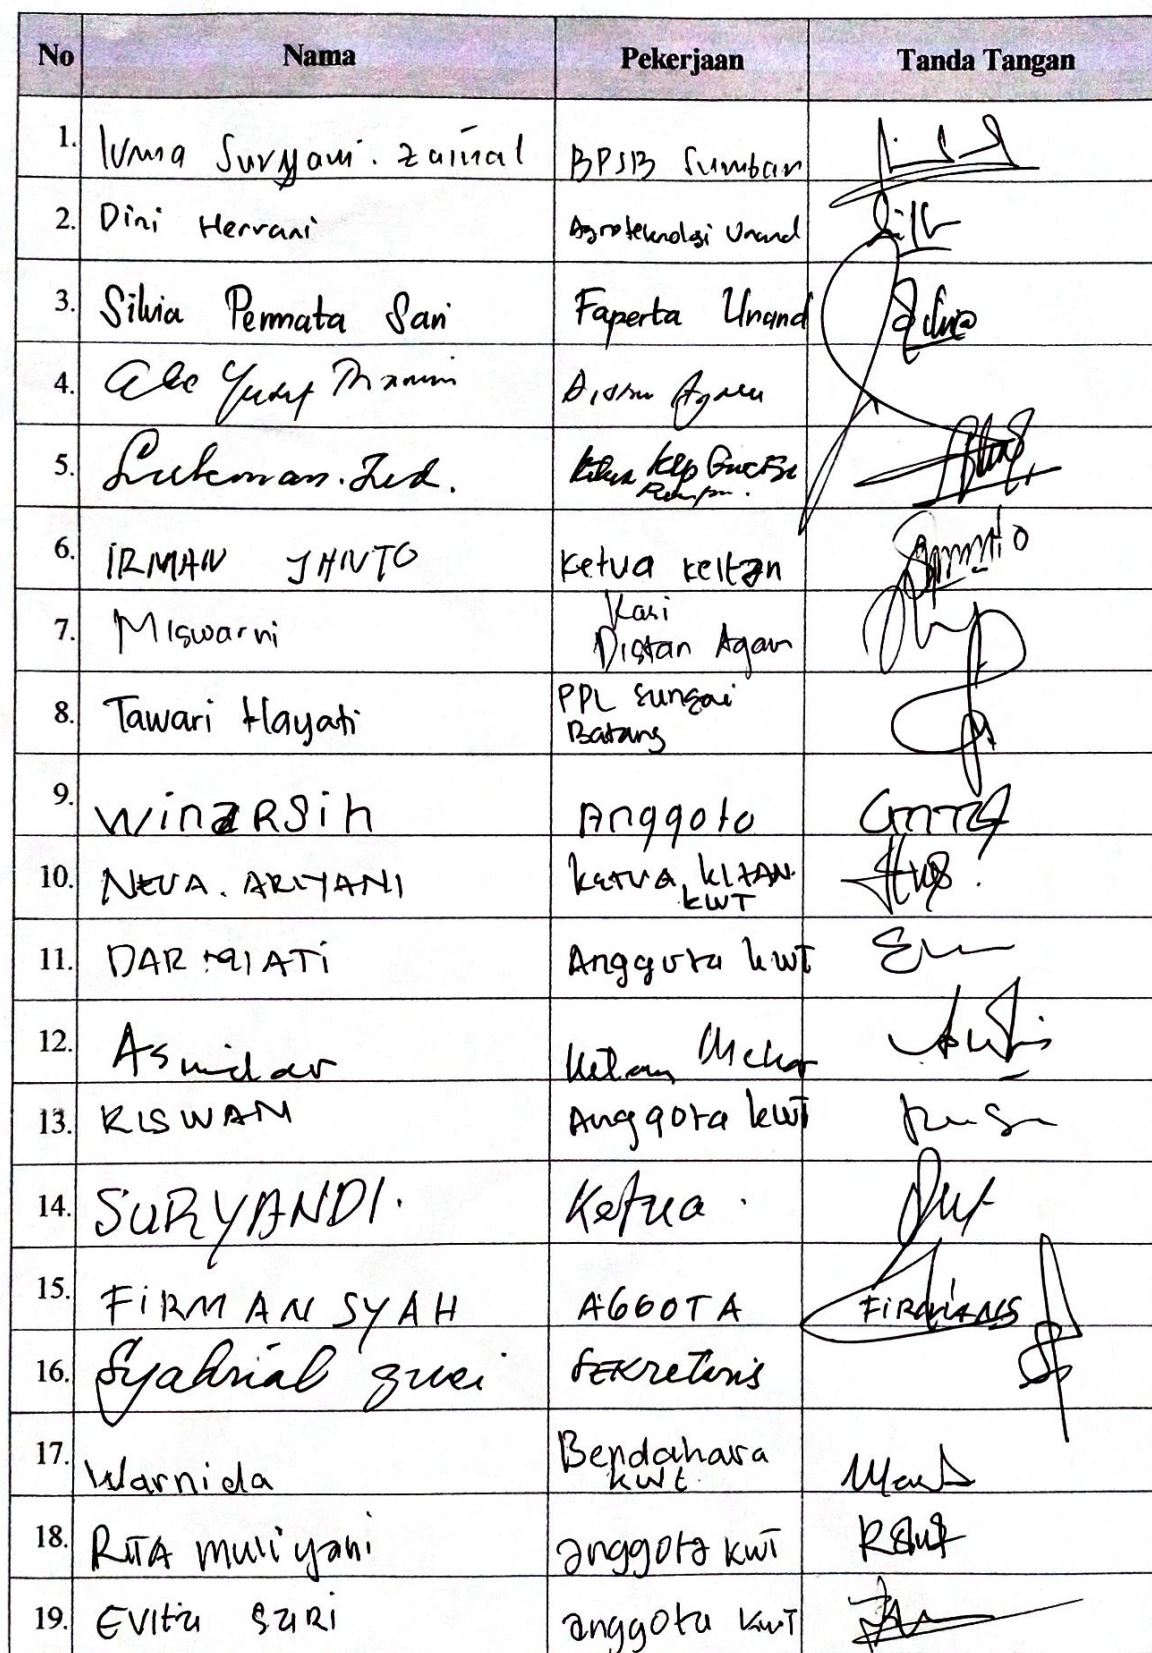 No Nama Pekerjaan Tanda Tangan
1. Suryani. Zainal BPSB Sumbar
2. Dini Herrani Agroteknologi Unand
3. Silvia Permata Sari Faperta Unand Silvia
4. Yusuf
5. Lukman. Ketua Klp
6. IRMAN JANTO Ketua Keltan
7. Miswarni Kasi
Distan Agam
8. Tawari Hayati PPL Sungai
Batang
9. WinaRSih Anggota
10. NEVA. ARIYANI Ketua KLTAN.
KWT
11. DAR Anggota kwT
12. Asnidar Keltan Mekar
13. RISWAN Anggota kwT
14. SURYANDI. Ketua.
15. FiRMANSYAH AGGOTA FiRMANS
16. Syahrial SEKretaris
17. Warnida Bendahara
kwt.
18. RiTA muliyani anggota KWT
19. EVita SaRi anggota KwT